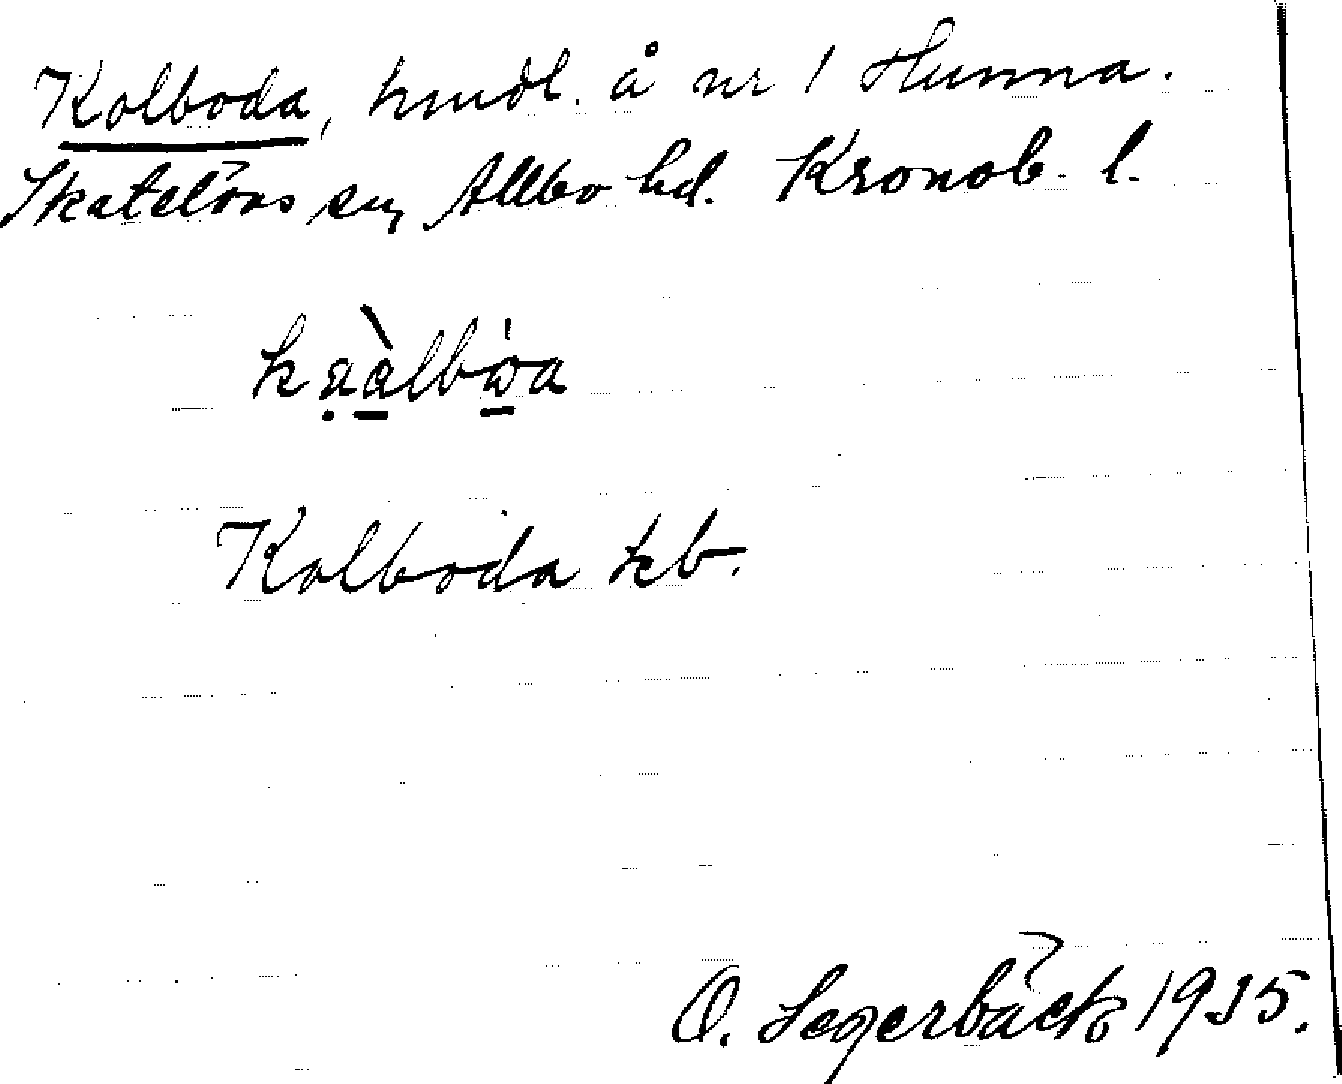 Kolboda, hmdl. å nr 1 Hunna.
Skatelövs sn, Allbo hd. Kronob. l.
Kolboda kb.
O. Segerbäck 1935.